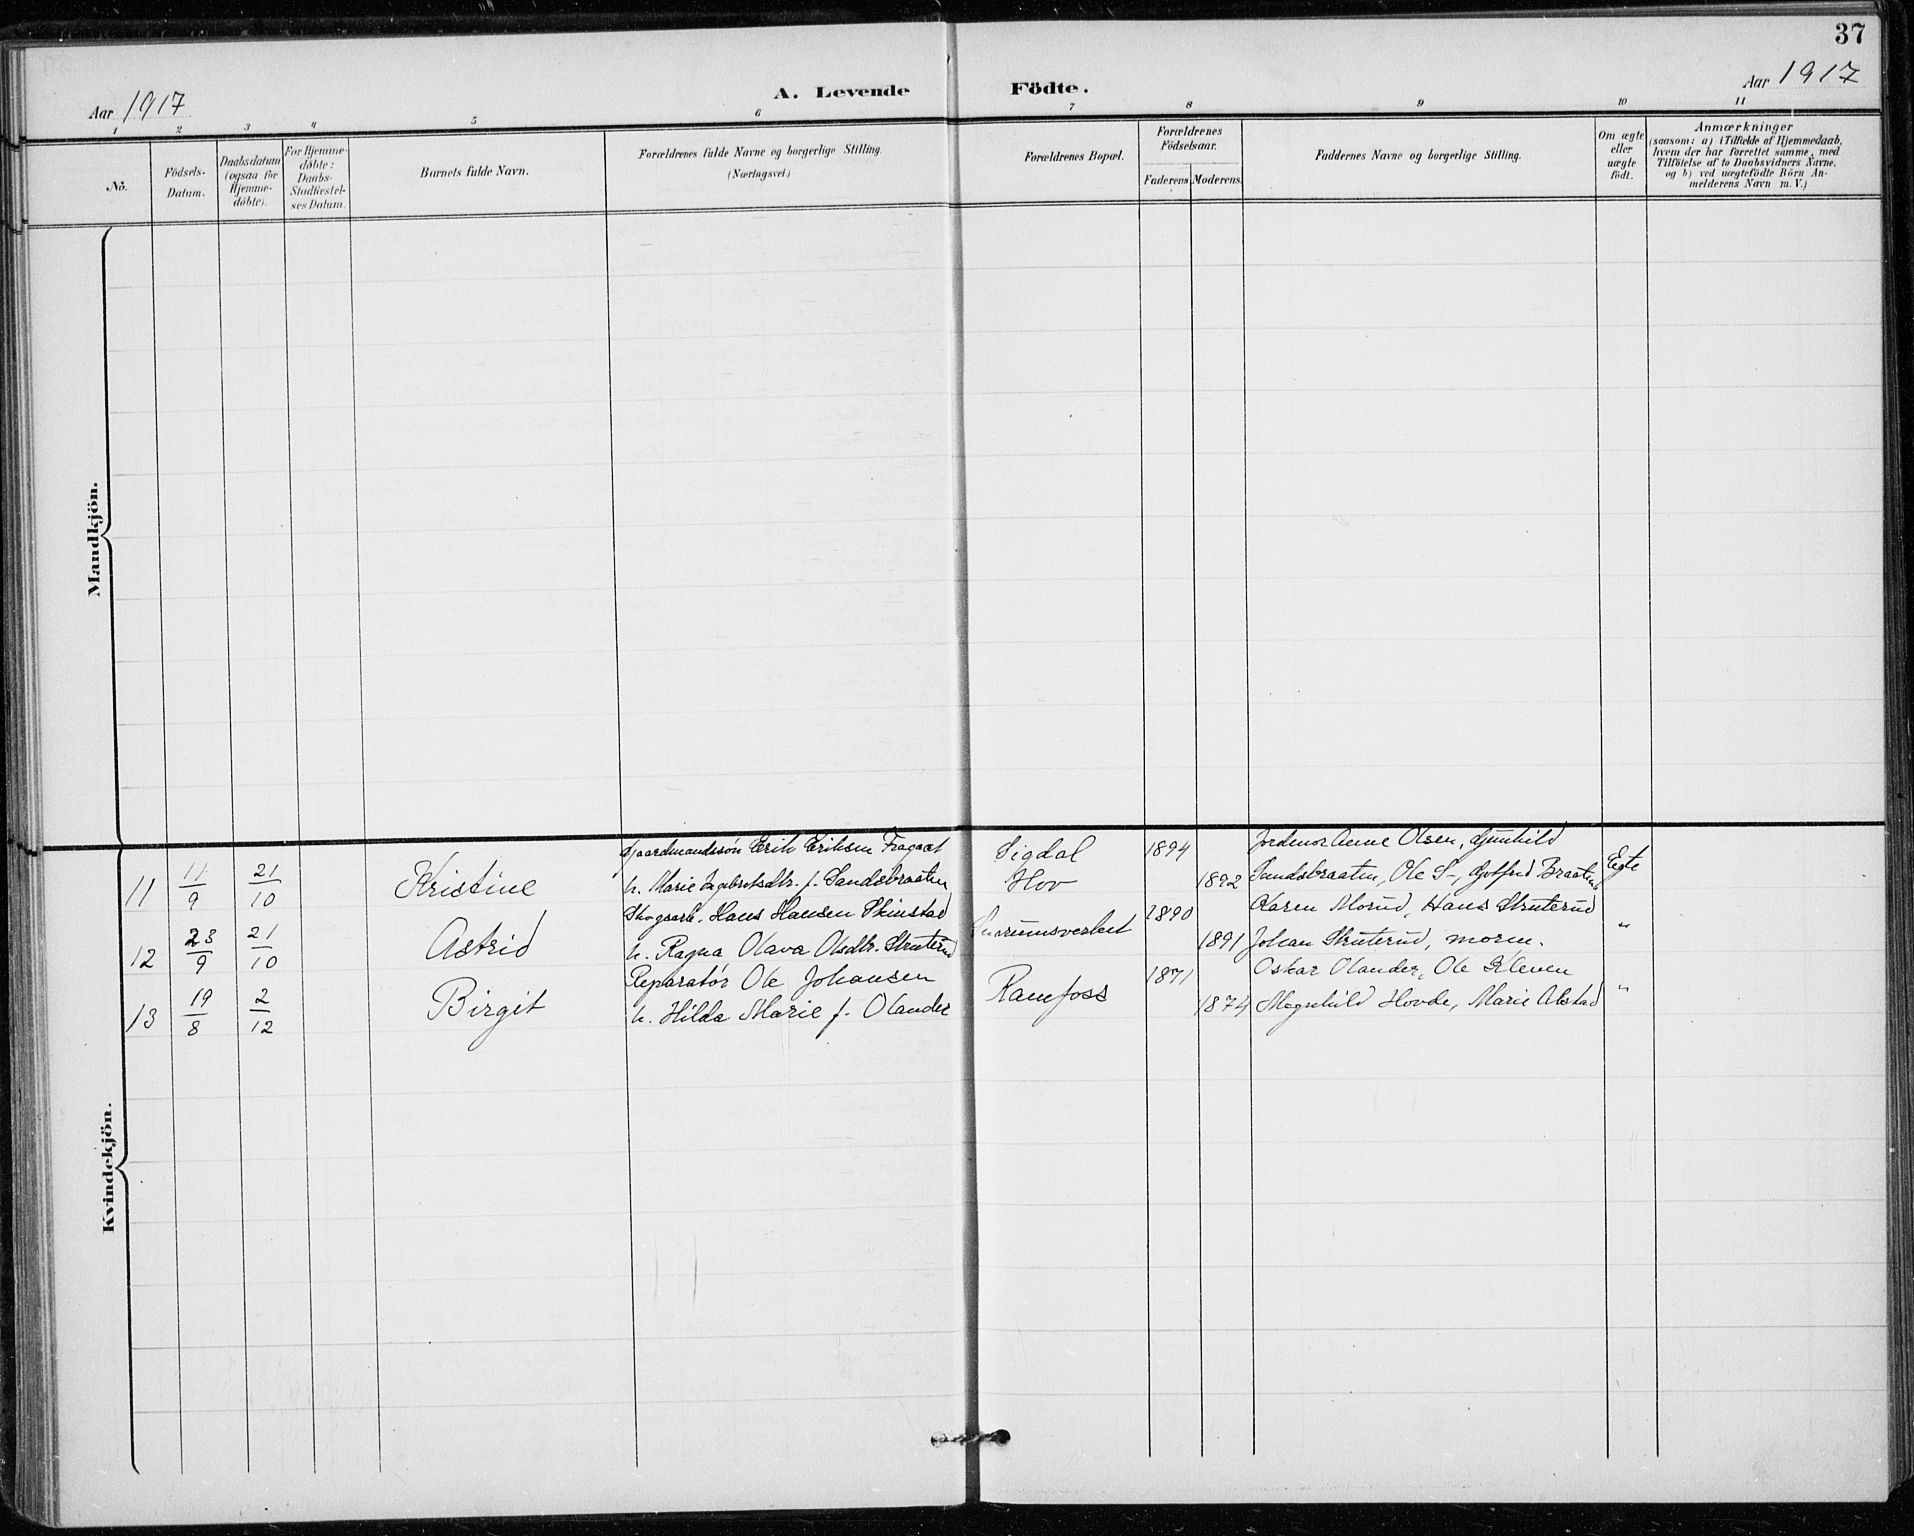 37
Aar 1917
A. Levende Födte.
Aar 1917
1 2 3 4 5 6 7 8 9 10 11
No.
Födsels-Datum.
Daabsdatum (ogsaa for Hjemme-döbte).
For Hjemme-döbte: Daabs-Stadfæstel-ses Datum.
Barnets fulde Navn.
Forældrenes fulde Navne og borgerlige Stilling.
(Næringsvei.)
Forældrenes Bopæl.
Forældrenes Födselsaar.
Faderens Moderens.
Faddernes Navne og borgerlige Stilling.
Om ægte eller uægte födt.
Anmærkninger
(saasom: a) i Tilfælde af Hjemmedaab,
hvem der har forrettet samme, med
Tilföielse af to Daabsvidners Navne,
og b) ved uægtefödte Börn An-
melderens Navn m. V.)
Mandkjön.
Kvindekjön.
Gaardmandssøn Erik Eriksen Sigdal 1894 Jordmor Anne Olsen, Gunhild
11 11/9 21/10 Kristine h. Marie Ingebretsdtr. f. Sandsbraaten Hov 1892 Sandsbraaten, Ole S-, Braaten Egte
Skogsarb. Hans Hansen Skinstad 1890 Karen Morud, Hans Struterud
12 23/9 21/10 Astrid h. Ragna Olava Olsdtr. Struterud 1891 Johan Struterud, moren. "
Reparatør Ole Johansen Ramfoss 1871 Oskar Olander, Ole Kleven
13 19/8 2/12 Birgit h. Hilda Marie f. Olander 1874 Magnhild Hovde, Marie Alstad "